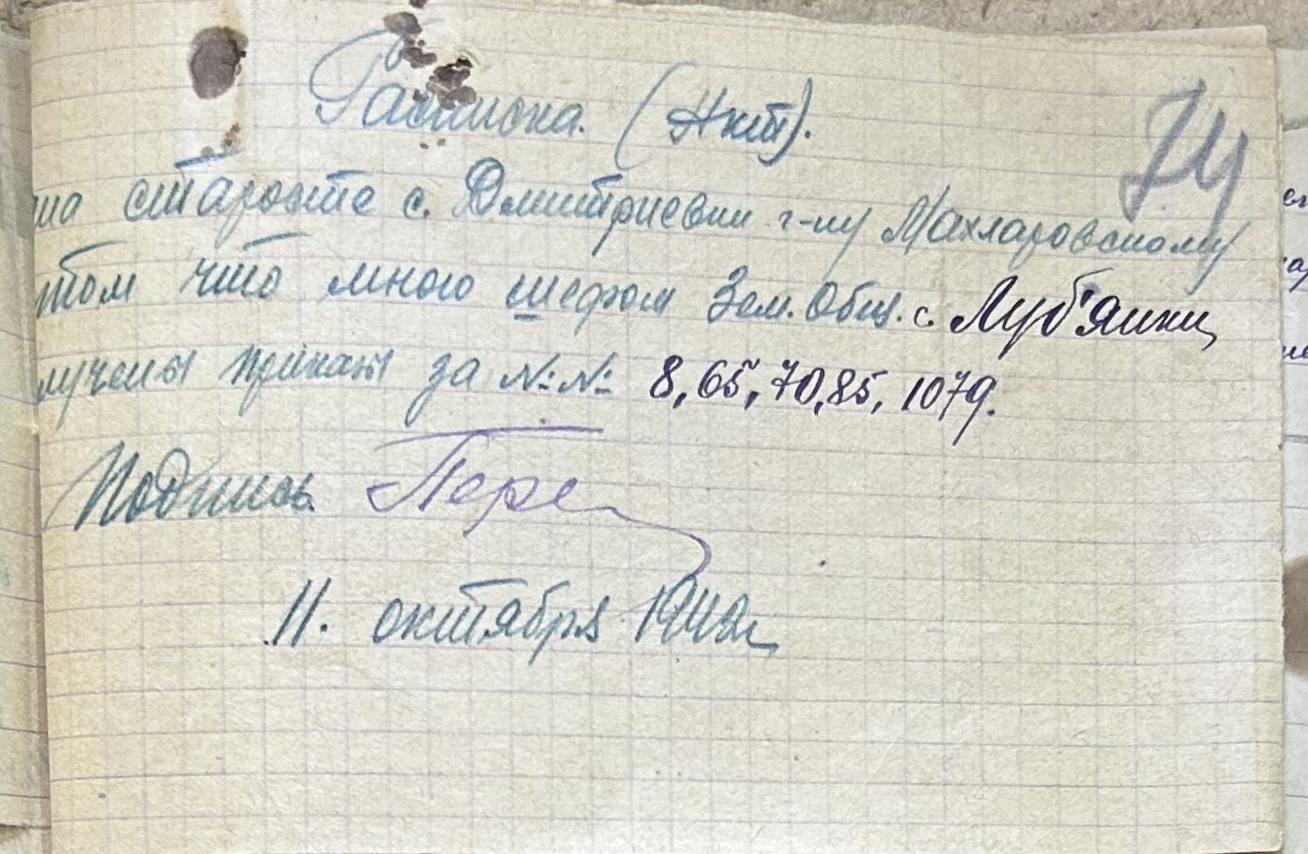 Расписка. (Нкт).
74
на старосте с. Дмитриевки г-ну Махларовскому
том что мною шефом Зем. Общ. с. Луб'янки
лучены приказы за №№ 8, 65, 70, 85, 1079.
Подпись
11. октября 1942 г.